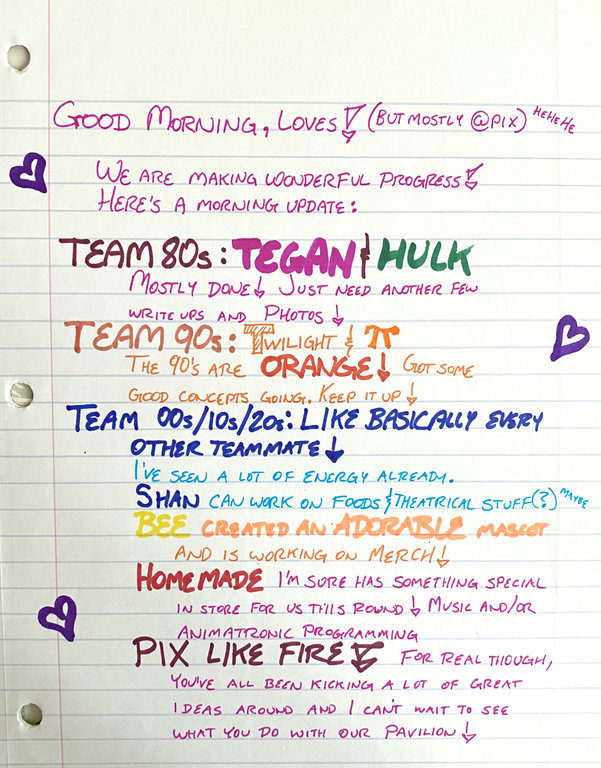 GOOD MORNING, LOVES! (BUT MOSTLY @PIX) HEHEHE
WE ARE MAKING WONDERFUL PROGRESS!
HERE'S A MORNING UPDATE:
TEAM 80s: TEGAN & HULK
MOSTLY DONE! JUST NEED ANOTHER FEW
WRITE UPS AND PHOTOS!
TEAM 90s: TWILIGHT & π
THE 90'S ARE ORANGE! GOT SOME
GOOD CONCEPTS GOING. KEEP IT UP!
TEAM 00s/10s/20s: LIKE BASICALLY EVERY
OTHER TEAMMATE!
I'VE SEEN A LOT OF ENERGY ALREADY.
SHAN CAN WORK ON FOODS & THEATRICAL STUFF(?) MAYBE
BEE CREATED AN ADORABLE MASCOT
AND IS WORKING ON MERCH!
HOMEMADE I'M SURE HAS SOMETHING SPECIAL
IN STORE FOR US THIS ROUND! MUSIC AND/OR
ANIMATRONIC PROGRAMMING
PIX LIKE FIRE! FOR REAL THOUGH,
YOU'VE ALL BEEN KICKING A LOT OF GREAT
IDEAS AROUND AND I CAN'T WAIT TO SEE
WHAT YOU DO WITH OUR PAVILION!